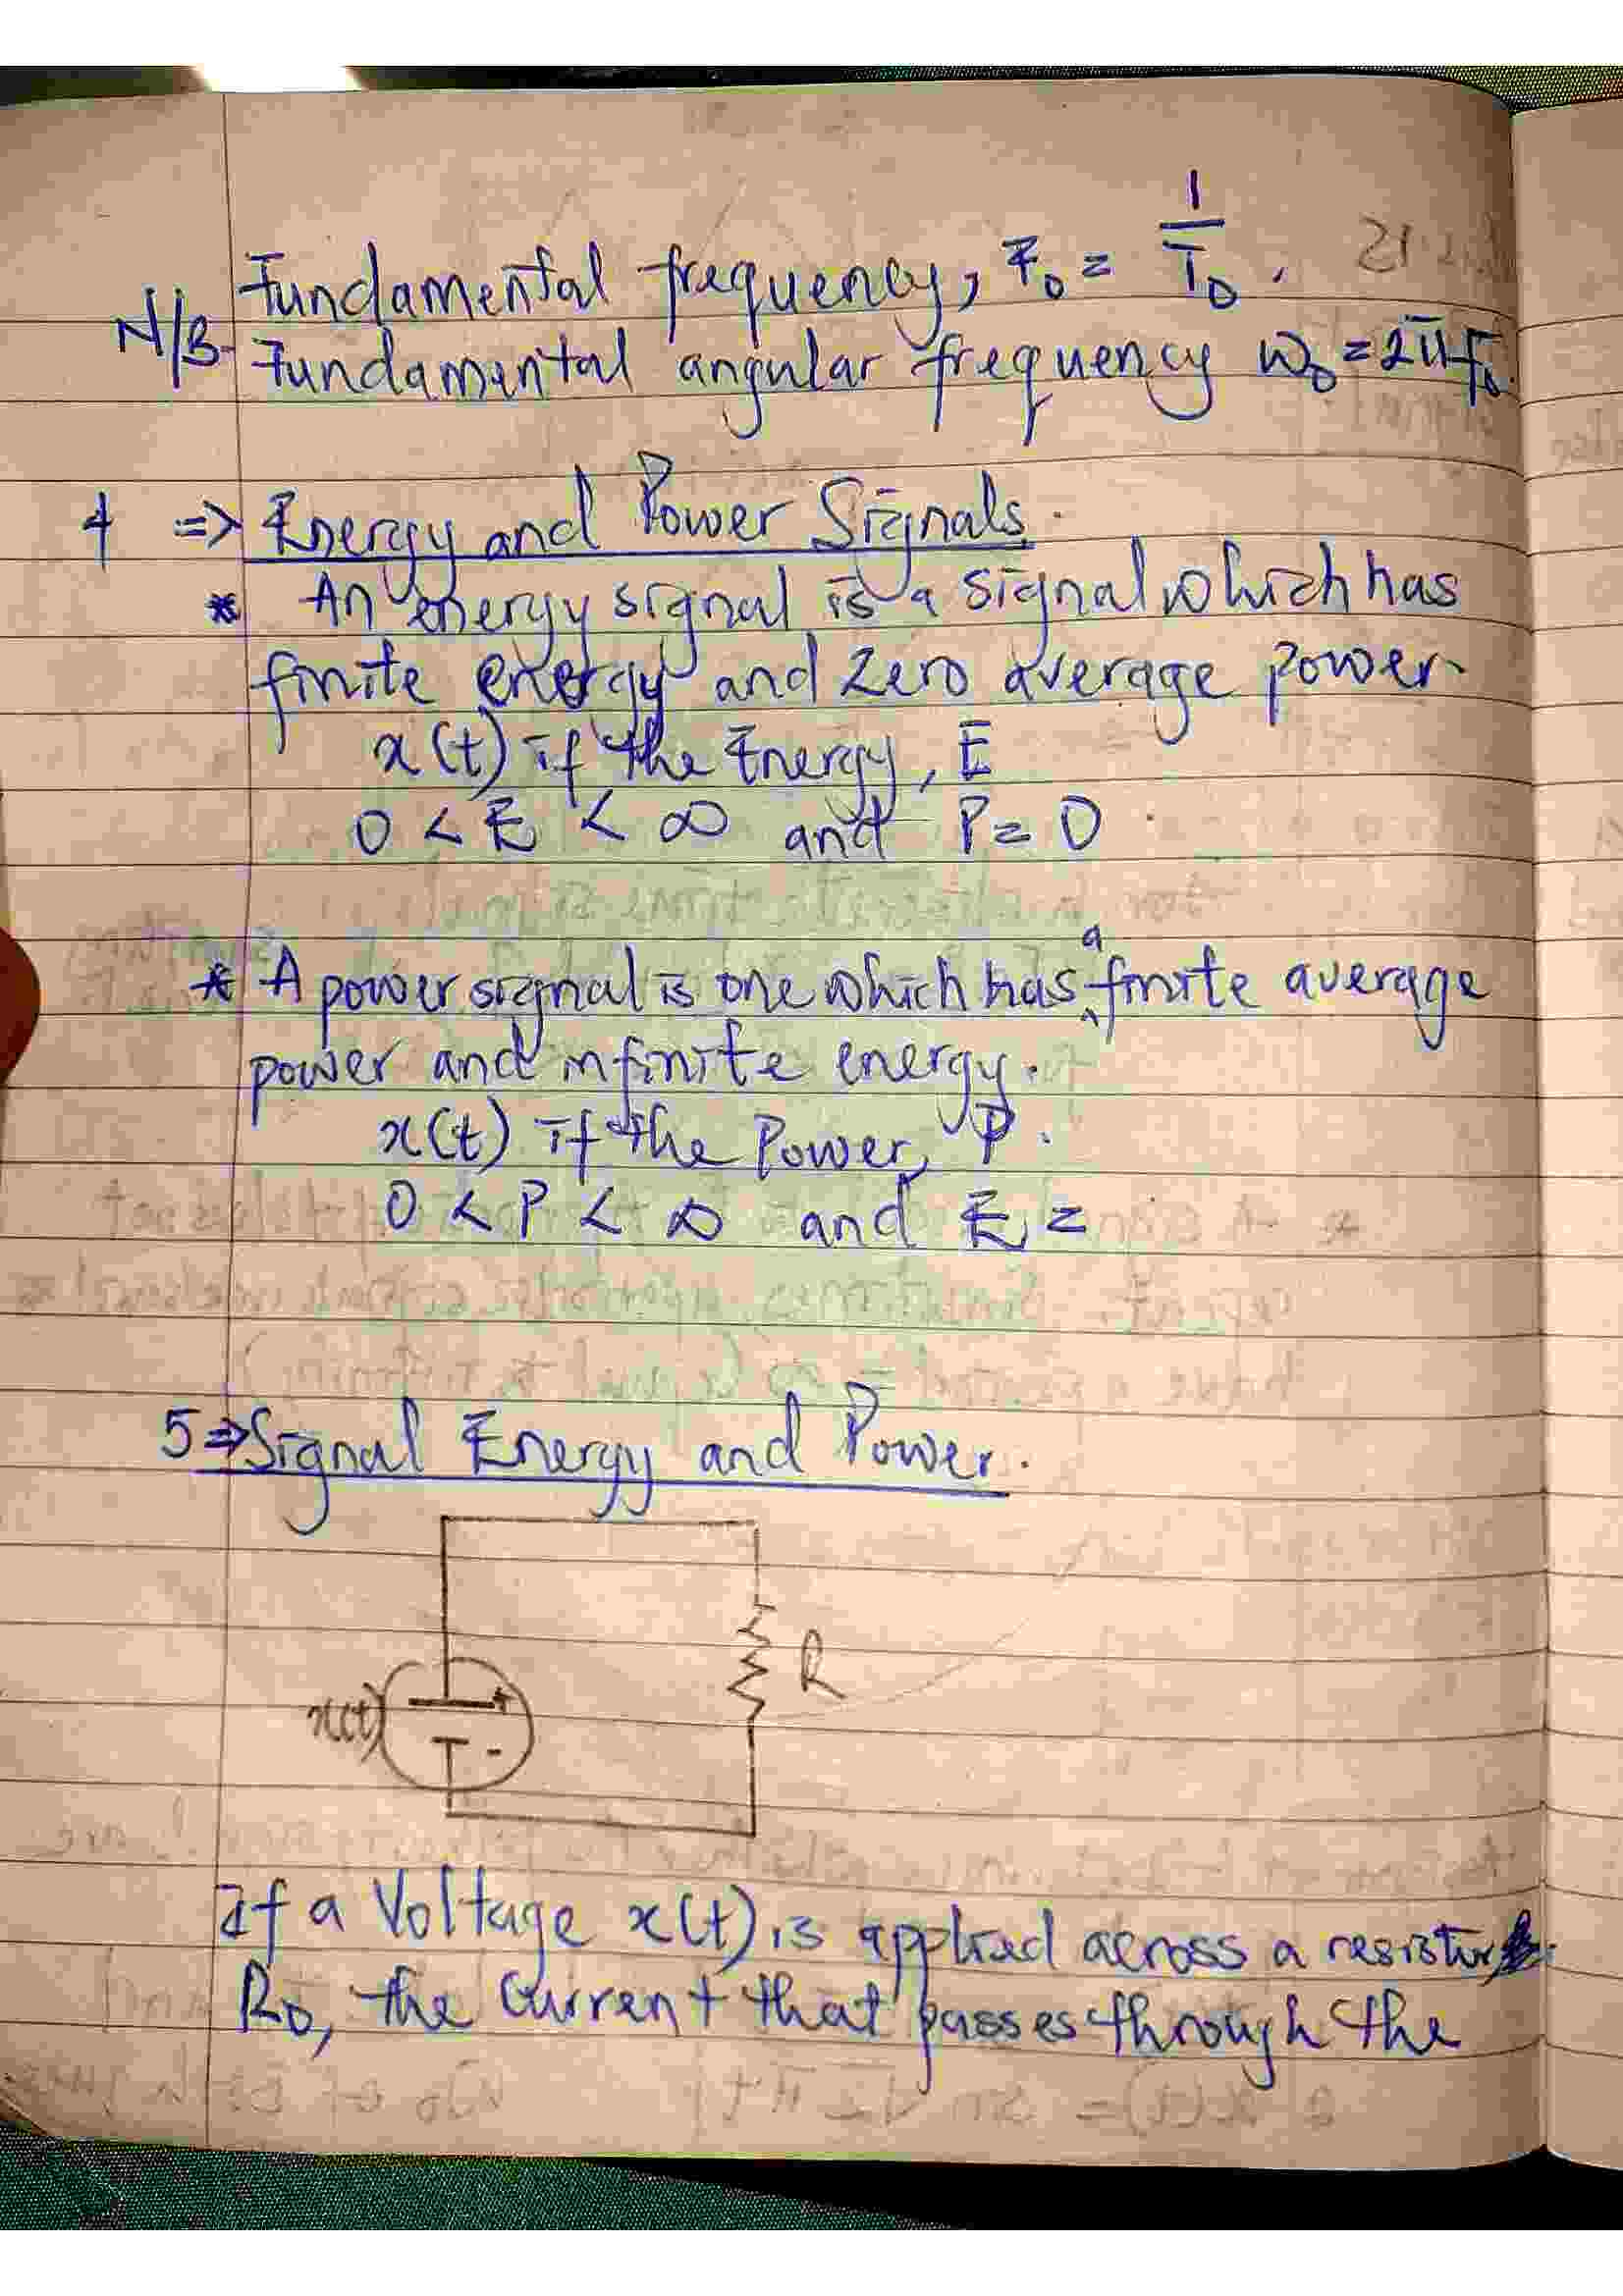 Fundamental frequency, F₀ = 1/T₀.
N/B- Fundamental angular frequency ω₀ = 2πf₀.
4 => Energy and Power Signals.
* An energy signal is a signal which has
finite energy and zero average power.
x(t) if the Energy, E
0 < E < ∞ and P = 0
* A power signal is one which has a finite average
power and infinite energy.
x(t) if the Power, P.
0 < P < ∞ and E =
5 => Signal Energy and Power.
x(t)
+
-
R
If a Voltage x(t), is applied across a resistor
R₀, the current that passes through the